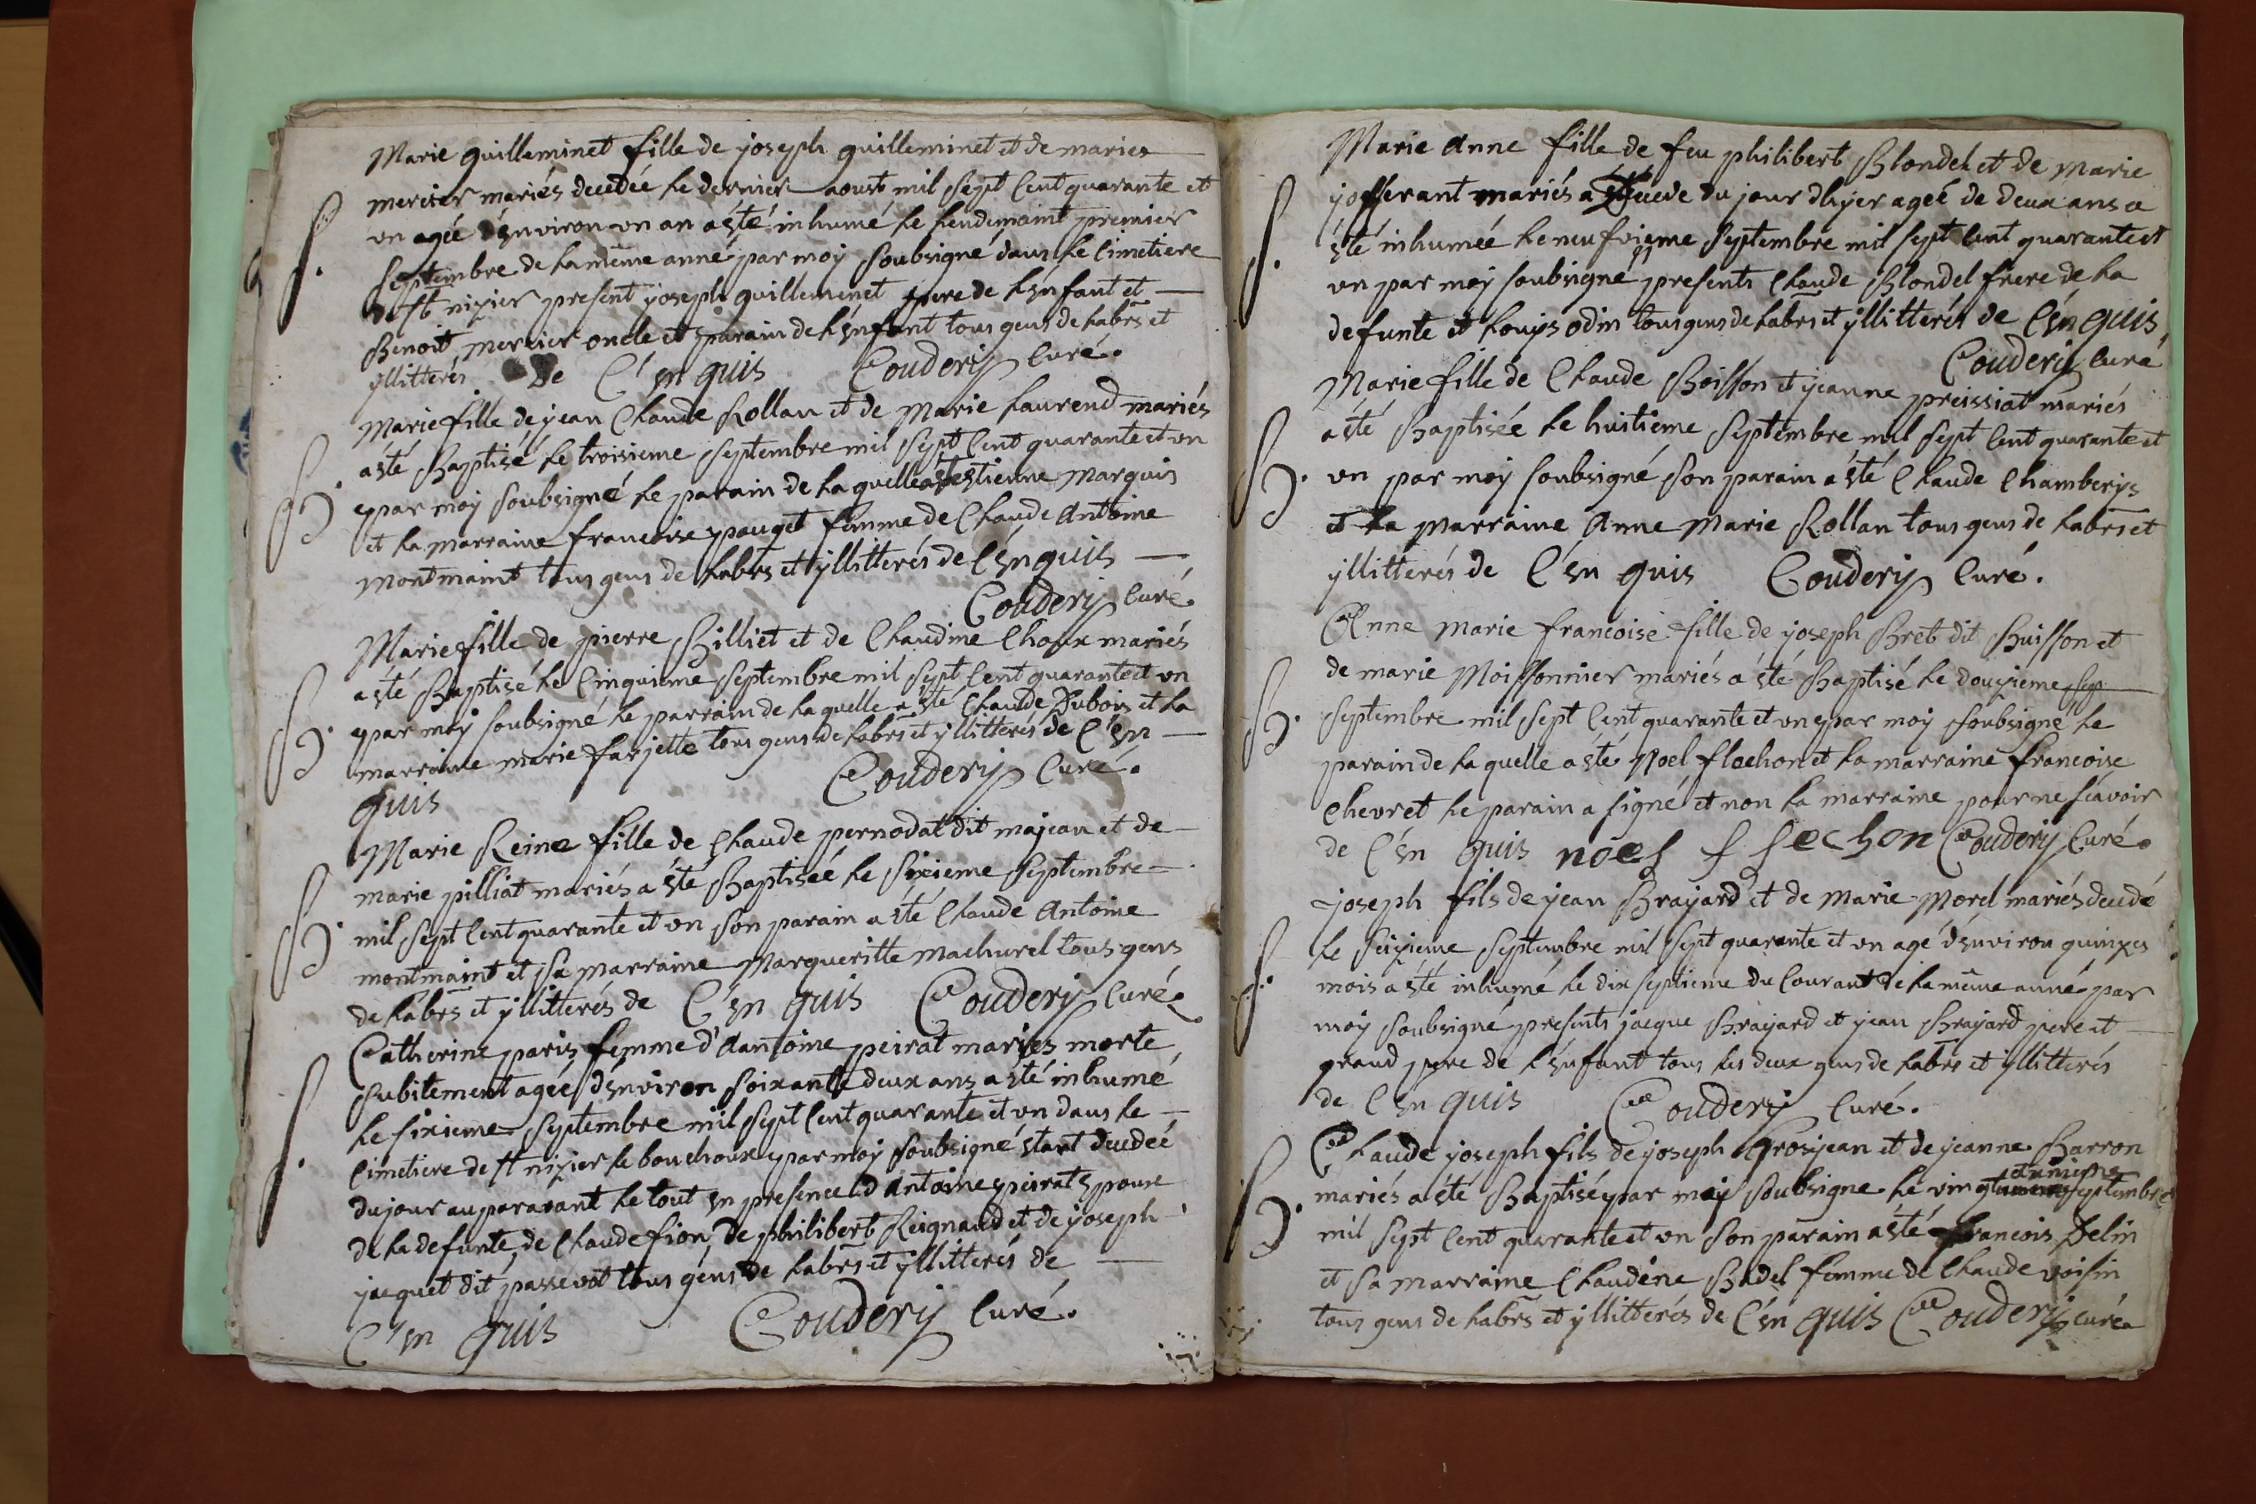 Marie guilleminet fille de joseph guilleminet et de marie
mercier mariés decedée le dernier aoust mil sept cent quarante et
S.
un agée d'environ un an a été inhumé le lendemaint premier
septembre de la même anné par moy soubsigné dans le cimetiere
de st nizier present joseph guilleminet pere de l'enfant et
Benoit mercier oncle et parain de l'enfant tous gens de labrs et
yllitterés De C'en quis Coudery curé.
Marie fille de jean Claude Rollan et de Marie Laurend mariés
a été Baptisé le troisieme septembre mil sept cent quarante et un
B.
par moy soubsigné le parain de la quelle a été estienne Marquis
et la marraine francoise pauget femme de Claude Antoine
montmaint tous gens de labrs et yllitterés de C'en quis
Coudery curé
Marie fille de pierre Billiet et de Claudine Choux mariés
a été Baptisé le Cinquieme septembre mil sept cent quarante et un
B.
par moy soubsigné le parrain de la quelle a été Claude Dubois et la
marraine marie farjette tous gens de labrs et yllitterés de C'en
quis Coudery Curé.
Marie Reine fille de Claude pernodat dit majean et de
marie pilliat mariés a été Baptisée le sixieme septembre
B.
mil sept cent quarante et un son parain a été Claude Antoine
montmaint et sa marraine Margueritte machurel tous gens
de labrs et yllitterés de C'en quis Coudery Curé.
Catherine paris femme d'Aantoine peirat mariés morte
subitement agée d'environ soixante deux ans a été inhumé
le sixieme septembre mil sept cent quarante et un dans le
S.
cimetiere de st nizier le bouchoux par moy soubsigné etant decedeé
du jour auparavant le tout en presence d'Antoine peirat epoux
de la defunte, de Claude fion, de philibert Reignaud et de joseph
jacquet dit passevot tous gens de labrs et yllitterés de
C'en quis Coudery Curé.
Marie Anne fille de feu philibert Blondel et de Marie
jofferant mariés a decede du jour d'hyer ageé de deux ans a
S.
été inhumée le neufvieme septembre mil sept cent quarante et
un par moy soubsigné presents Claude Blondel frere de la
defunte et Louys odin tous gens de labrs et yllitterés de C'en quis,
Coudery Curé
Marie fille de Claude Boisson et jeanne preissiat mariés
a été Baptisée le huitieme septembre mil sept cent quarante et
B.
un par moy soubsigné son parain a été Claude Chamberys
et la Marraine Anne Marie Rollan tous gens de labrs et
yllitterés de C'en quis Coudery Curé.
Anne marie francoise fille de joseph Bret dit Buisson et
de marie Moissonnier mariés a été Baptisé le douzieme sep
B.
septembre mil sept cent quarante et un par moy soubsigné le
parain de la quelle a été Noel flechon et la marraine francoise
Chevret le parain a signé et non la marraine pour ne scavoir
de C'en quis noel flechon Coudery Curé.
joseph fils de jean Brayard et de Marie Morel mariés decedé
S.
le seizieme septembre mil sept quarante et un agé d'environ quinzes
mois a été inhumé le dix septieme du Courant de la même anné par
moy soubsigné presents jacque Brayard et jean Brayard pere et
grand pere de l'enfant tous les deux gens de labrs et yllitterés
de C'en quis Coudery Curé.
Claude joseph fils de joseph Grosjean et de jeanne Barron
mariés a été Baptisé par moy soubsigné le vingt septembre
B.
mil sept cent quarante et un son parain a été francois Pelin
et sa marraine Claudene Badel femme de Claude voisin
tous gens de labrs et yllitterés de C'en quis Coudery curé